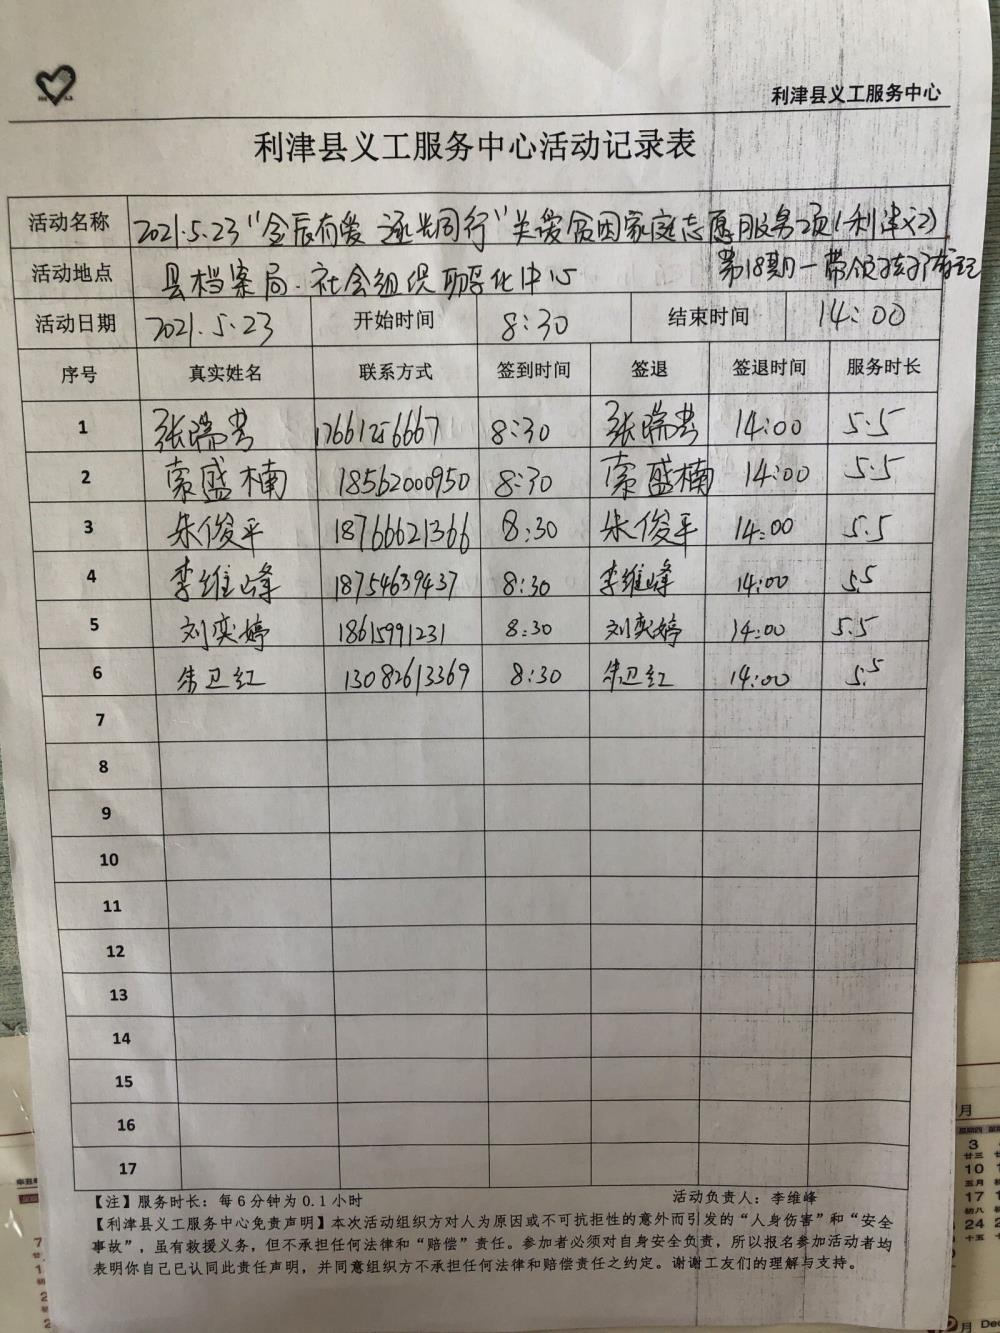 利津县义工服务中心
利津县义工服务中心活动记录表
活动名称 2021.5.23“金辰有爱 逐光同行”关爱贫困家庭志愿服务项(利津义工)
第18期一带领孩子
活动地点 县档案局.社会组织孵化中心
活动日期 2021.5.23 开始时间 8:30 结束时间 14:00
序号 真实姓名 联系方式 签到时间 签退 签退时间 服务时长
1 张瑞芸 17661256667 8:30 张瑞芸 14:00 5.5
2 索盛楠 18562000950 8:30 索盛楠 14:00 5.5
3 朱俊平 18766621366 8:30 朱俊平 14:00 5.5
4 李维峰 18754639437 8:30 李维峰 14:00 5.5
5 刘奕婷 18615991231 8:30 刘奕婷 14:00 5.5
6 朱卫红 13082613369 8:30 朱卫红 14:00 5.5
7
8
9
10
11
12
13
14
15
16
17
【注】服务时长：每6分钟为0.1小时 活动负责人：李维峰
【利津县义工服务中心免责声明】本次活动组织方对人为原因或不可抗拒性的意外而引发的“人身伤害”和“安全
事故”，虽有救援义务，但不承担任何法律和“赔偿”责任。参加者必须对自身安全负责，所以报名参加活动者均
表明你自己已认同此责任声明，并同意组织方不承担任何法律和赔偿责任之约定。谢谢工友们的理解与支持。